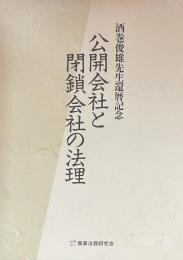 酒巻俊雄先生還暦記念
公開会社と
閉鎖会社の法理
商事法務研究会